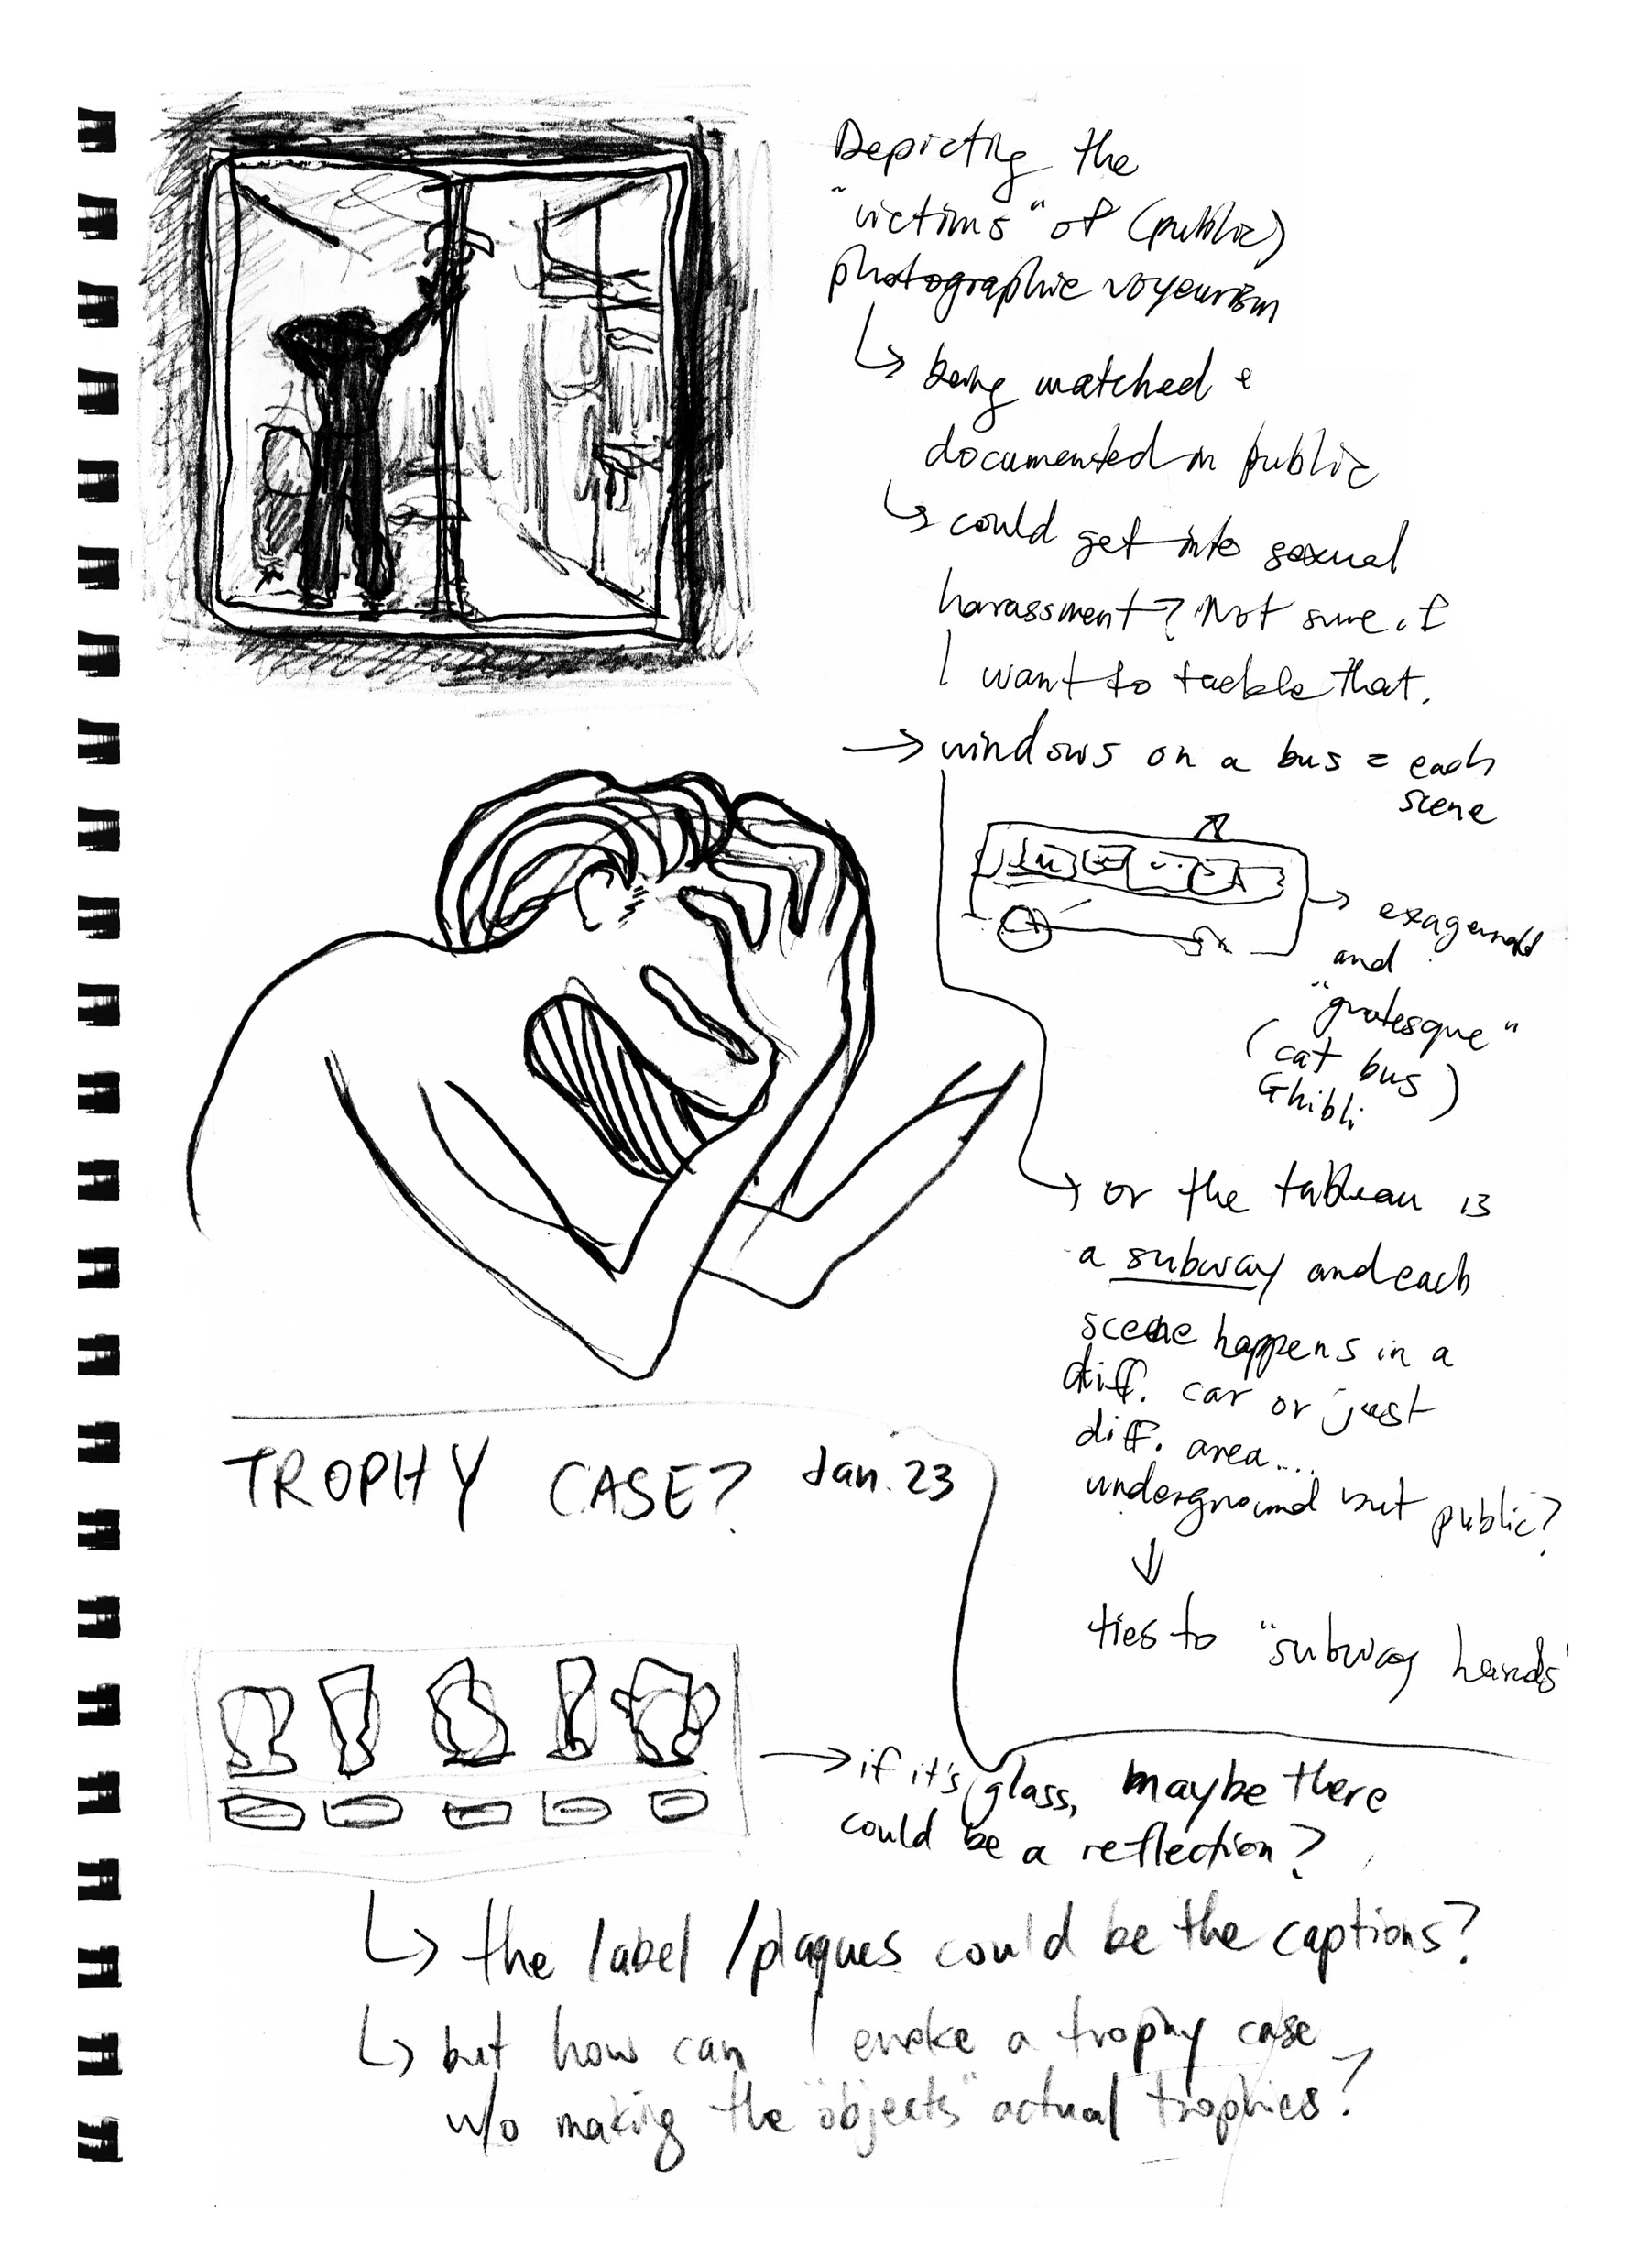 Depicting the
"victims" of (public)
photographic voyeurism
↳ being watched &
documented in public
↳ could get into sexual
harassment? Not sure if
I want to tackle that.
→ windows on a bus = each
scene
→ exagerated
and
"grotesque"
(cat bus)
Ghibli
→ or the tableau is
a subway and each
scene happens in a
diff. car or just
diff. area...
underground but public?
↓
ties to "subway hands"
TROPHY CASE? Jan. 23
→ if it's glass, maybe there
could be a reflection?
↳ the label/plaques could be the captions?
↳ but how can I evoke a trophy case
w/o making the "objects" actual trophies?